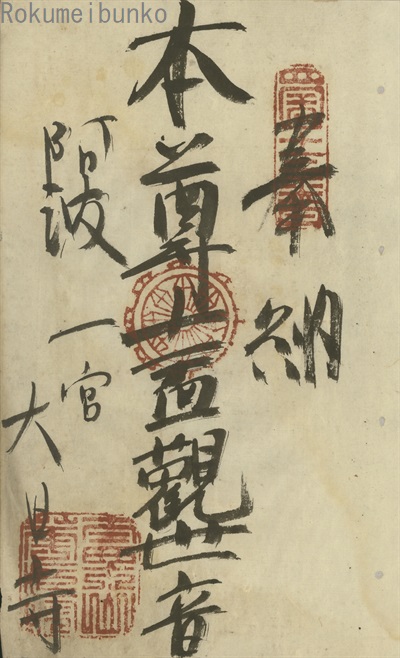 Rokumeibunko
奉納
本尊十一面觀世音
阿波一宮
大日寺